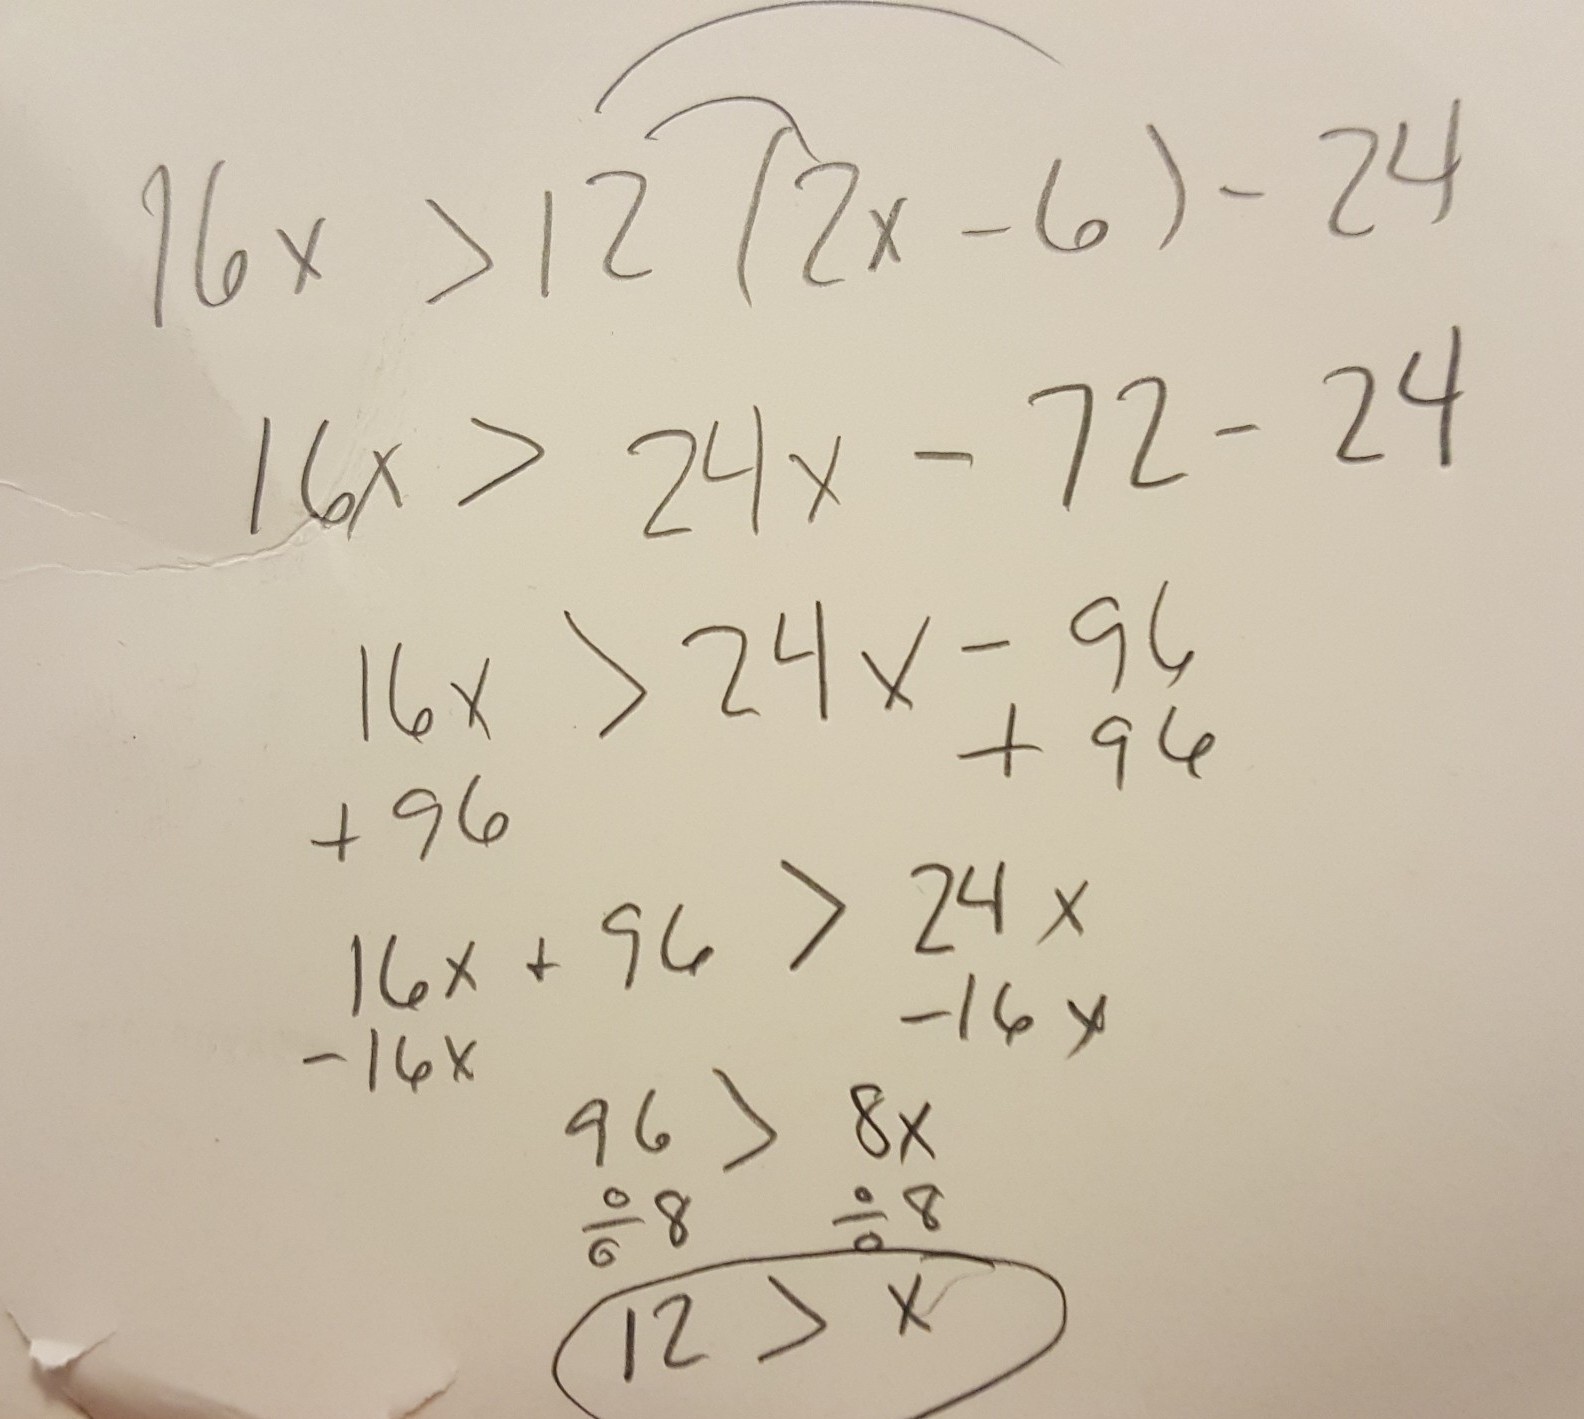 16x > 12 (2x - 6) - 24
16x > 24x - 72 - 24
16x > 24x - 96
+ 96
+ 96
16x + 96 > 24x
-16x
-16x
96 > 8x
÷8 ÷8
12 > x